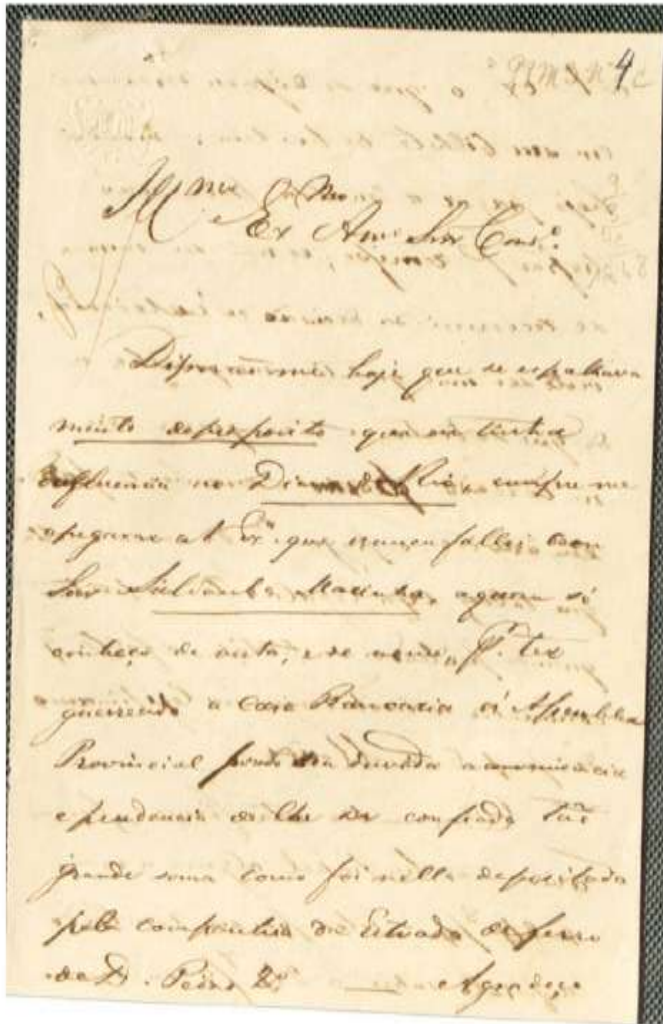 4
Ill.mo
Ex Am.o Snr Cons.o
hoje que se espalhava
muito de proposito que eu tinha
influencia no Diario do Rio, cumpre me
a V Ex.a que nunca fallei com
Snr Saldanha Marinho, a quem só
conheço de vista, e se
a Casa Bancaria á Assemblea
Provincial
e prudencia de lhe ser confiada tão
grande soma como foi nella depositada
pela companhia da Estrada de ferro
de D. Pedro 2.o — Agradeço